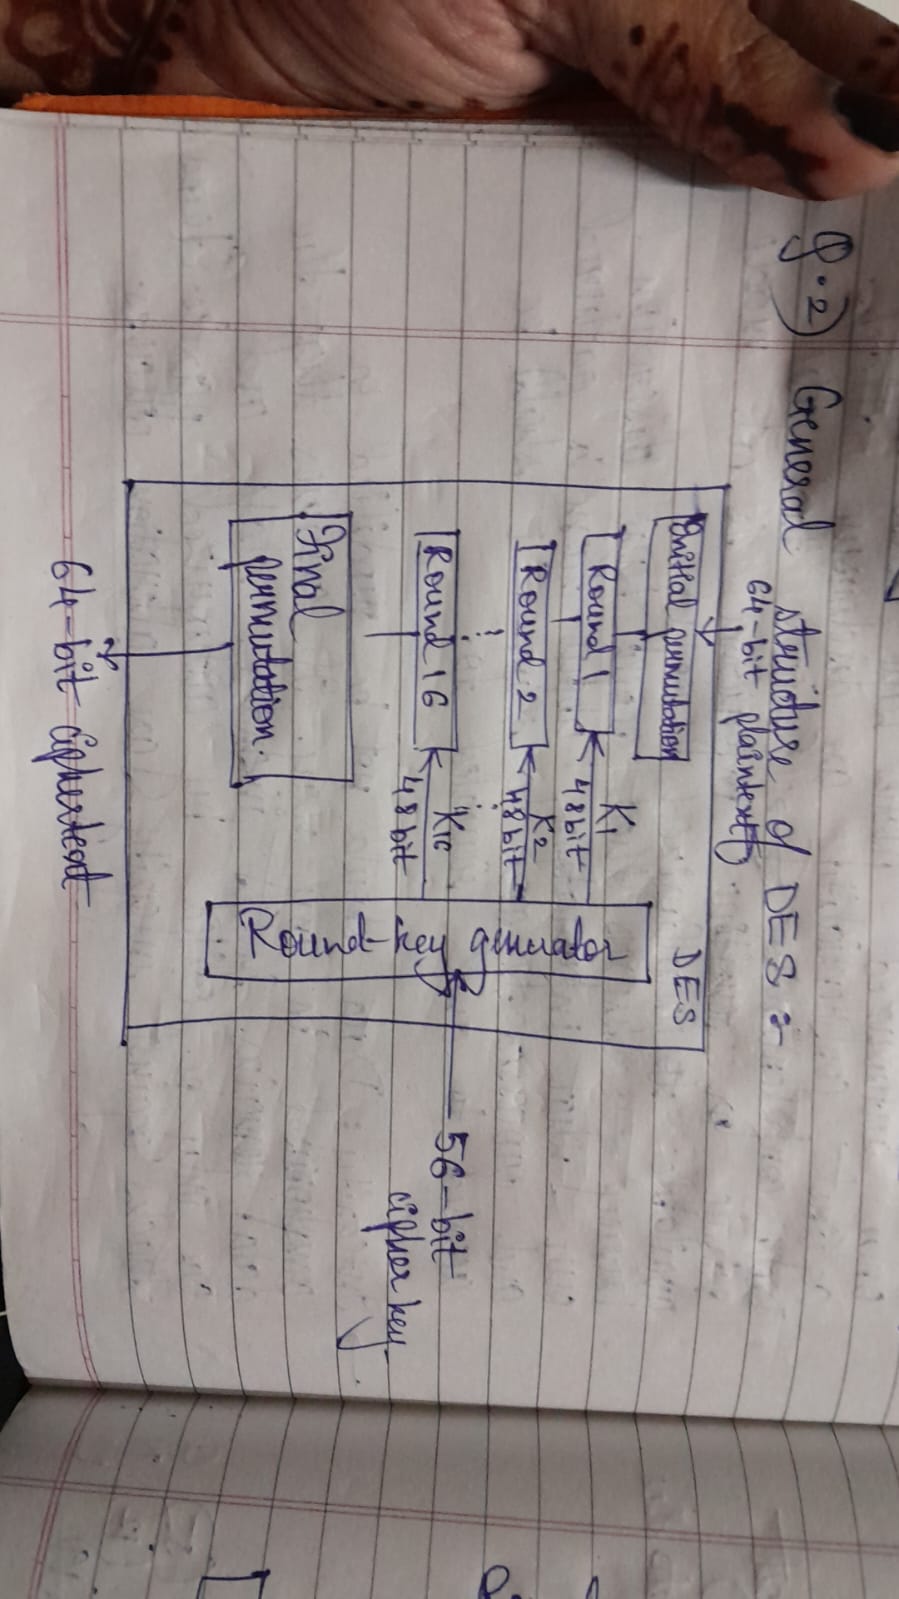 Q.2) General structure of DES :-
64-bit plaintext
DES
Initial permutation
Round 1
K1
48 bit
Round 2
K2
48 bit
Round 16
K16
48 bit
Round-key generator
56-bit
cipher key
Final
permutation.
64-bit ciphertext